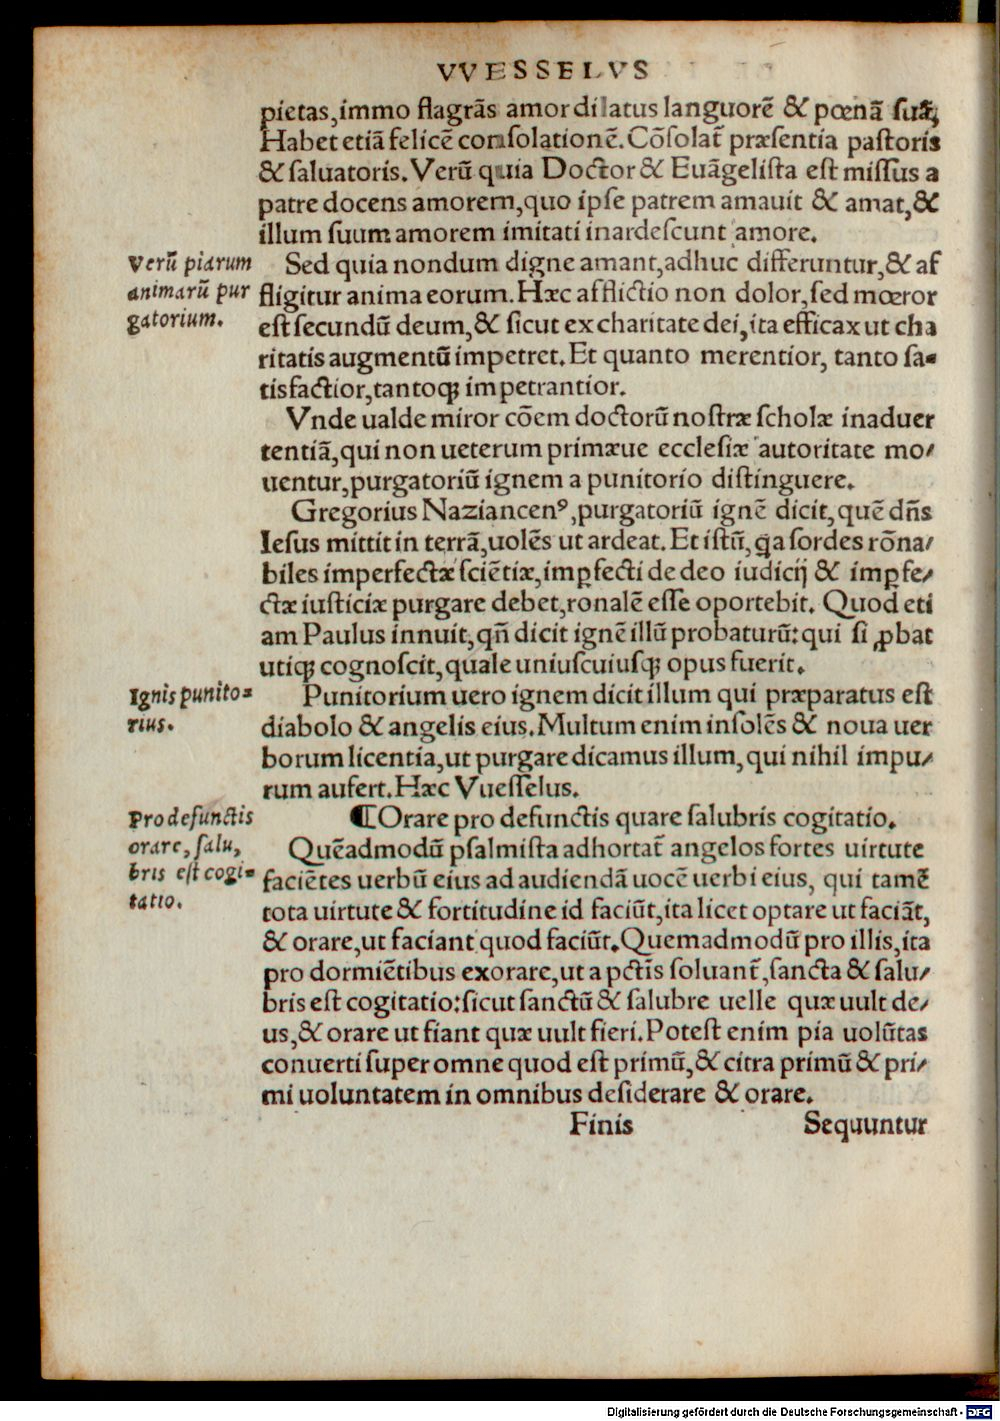 VVESSELVS
pietas,immo flagrãs amor dilatus languorẽ & pœnã suã,
Habet etiã felicẽ consolationẽ.Cõsolat̃ præsentia pastoris
& saluatoris.Verũ quia Doctor & Euãgelista est missus a
patre docens amorem,quo ipse patrem amauit & amat,&
illum suum amorem imitati inardescunt amore.
Verũ piarum
animarũ pur
gatorium.
Sed quia nondum digne amant,adhuc differuntur,& af
fligitur anima eorum.Hæc afflictio non dolor,sed mœror
est secundũ deum,& sicut ex charitate dei,ita efficax ut cha
ritatis augmentũ impetret.Et quanto merentior, tanto sa⸗
tisfactior,tantoqꝫ impetrantior.
Vnde ualde miror cõem doctorũ nostræ scholæ inaduer
tentiã,qui non ueterum primæue ecclesiæ autoritate mo/
uentur,purgatoriũ ignem a punitorio distinguere.
Gregorius Naziancenꝰ,purgatoriũ ignẽ dicit,quẽ dñs
Iesus mittit in terrã,uolẽs ut ardeat.Et istũ, ꝗa sordes rõna/
biles imperfectæ sciẽtiæ,imꝑfecti de deo iudicij & imꝑfe/
ctæ iusticiæ purgare debet,ronalẽ esse oportebit. Quod eti
am Paulus innuit,qñ dicit ignẽ illũ probaturũ:qui si ꝓbat
utiqꝫ cognoscit,quale uniuscuiusqꝫ opus fuerit.
Ignis punito⸗
rius.
Punitorium uero ignem dicit illum qui præparatus est
diabolo & angelis eius.Multum enim insolẽs & noua uer
borum licentia,ut purgare dicamus illum,qui nihil impu/
rum aufert.Hæc Vuesselus.
Pro defunctis
orare, salu,
bris est cogi⸗
tatio.
¶Orare pro defunctis quare salubris cogitatio.
Quẽadmodũ psalmista adhortat̃ angelos fortes uirtute
faciẽtes uerbũ eius ad audiendã uocẽ uerbi eius, qui tamẽ
tota uirtute & fortitudine id faciũt,ita licet optare ut faciãt,
& orare,ut faciant quod faciũt.Quemadmodũ pro illis,ita
pro dormiẽtibus exorare,ut a pctĩs soluant̃,sancta & salu/
bris est cogitatio:sicut sanctũ & salubre uelle quæ uult de/
us,& orare ut fiant quæ uult fieri.Potest enim pia uolũtas
conuerti super omne quod est primũ,& citra primũ & pri/
mi uoluntatem in omnibus desiderare & orare.
Finis Sequuntur
Digitalisierung gefördert durch die Deutsche Forschungsgemeinschaft - DFG